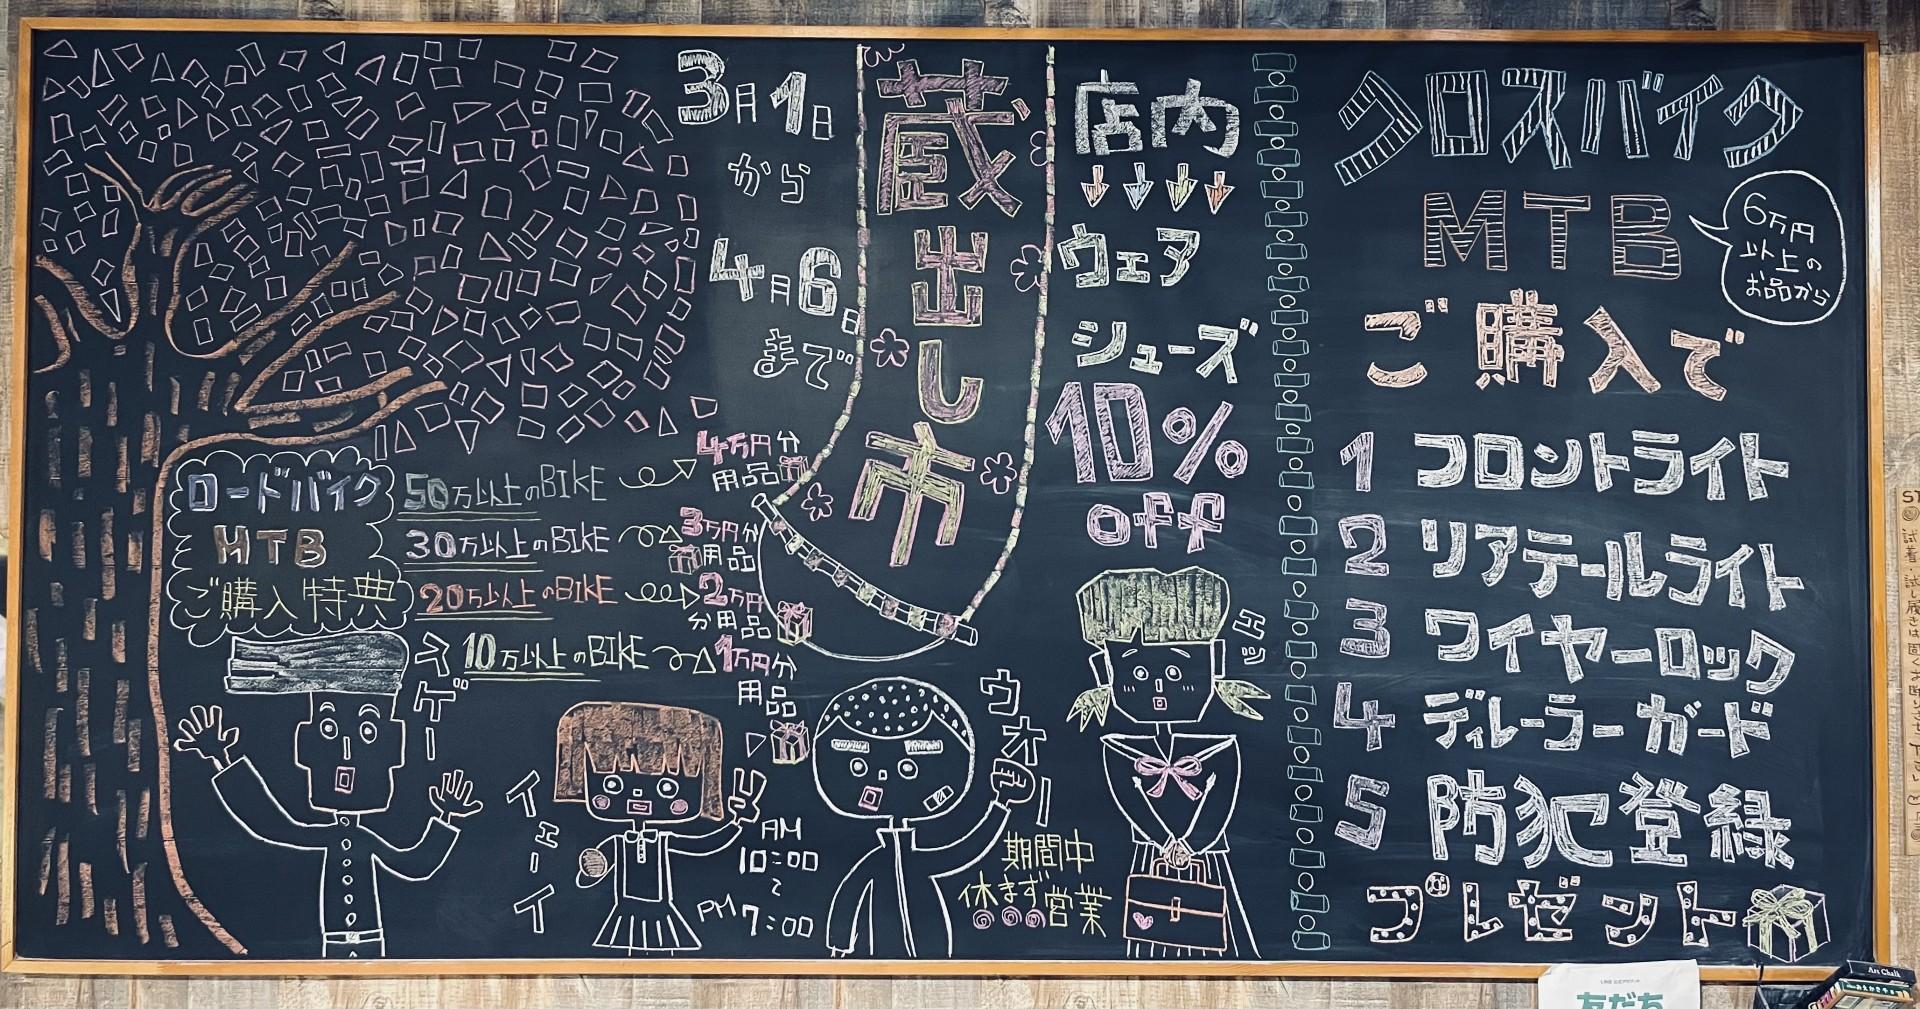 3月1日
から
4月6日
まで
蔵出し市
店内
ウェア
シューズ
10%
off
クロスバイク
MTB
6万円
以上の
お品から
ご購入で
1 フロントライト
2 リアテールライト
3 ワイヤーロック
4 ディレーラーガード
5 防犯登録
プレゼント
ロードバイク
MTB
ご購入特典
50万以上のBIKE
4万円分
用品
30万以上のBIKE
3万円分
用品
20万以上のBIKE
2万円
分用品
10万以上のBIKE
1万円分
用品
スゲーー
イェーイ
ウォー
エッ
AM
10:00
〜
PM 7:00
期間中
休まず営業
友だち
Art Chalk